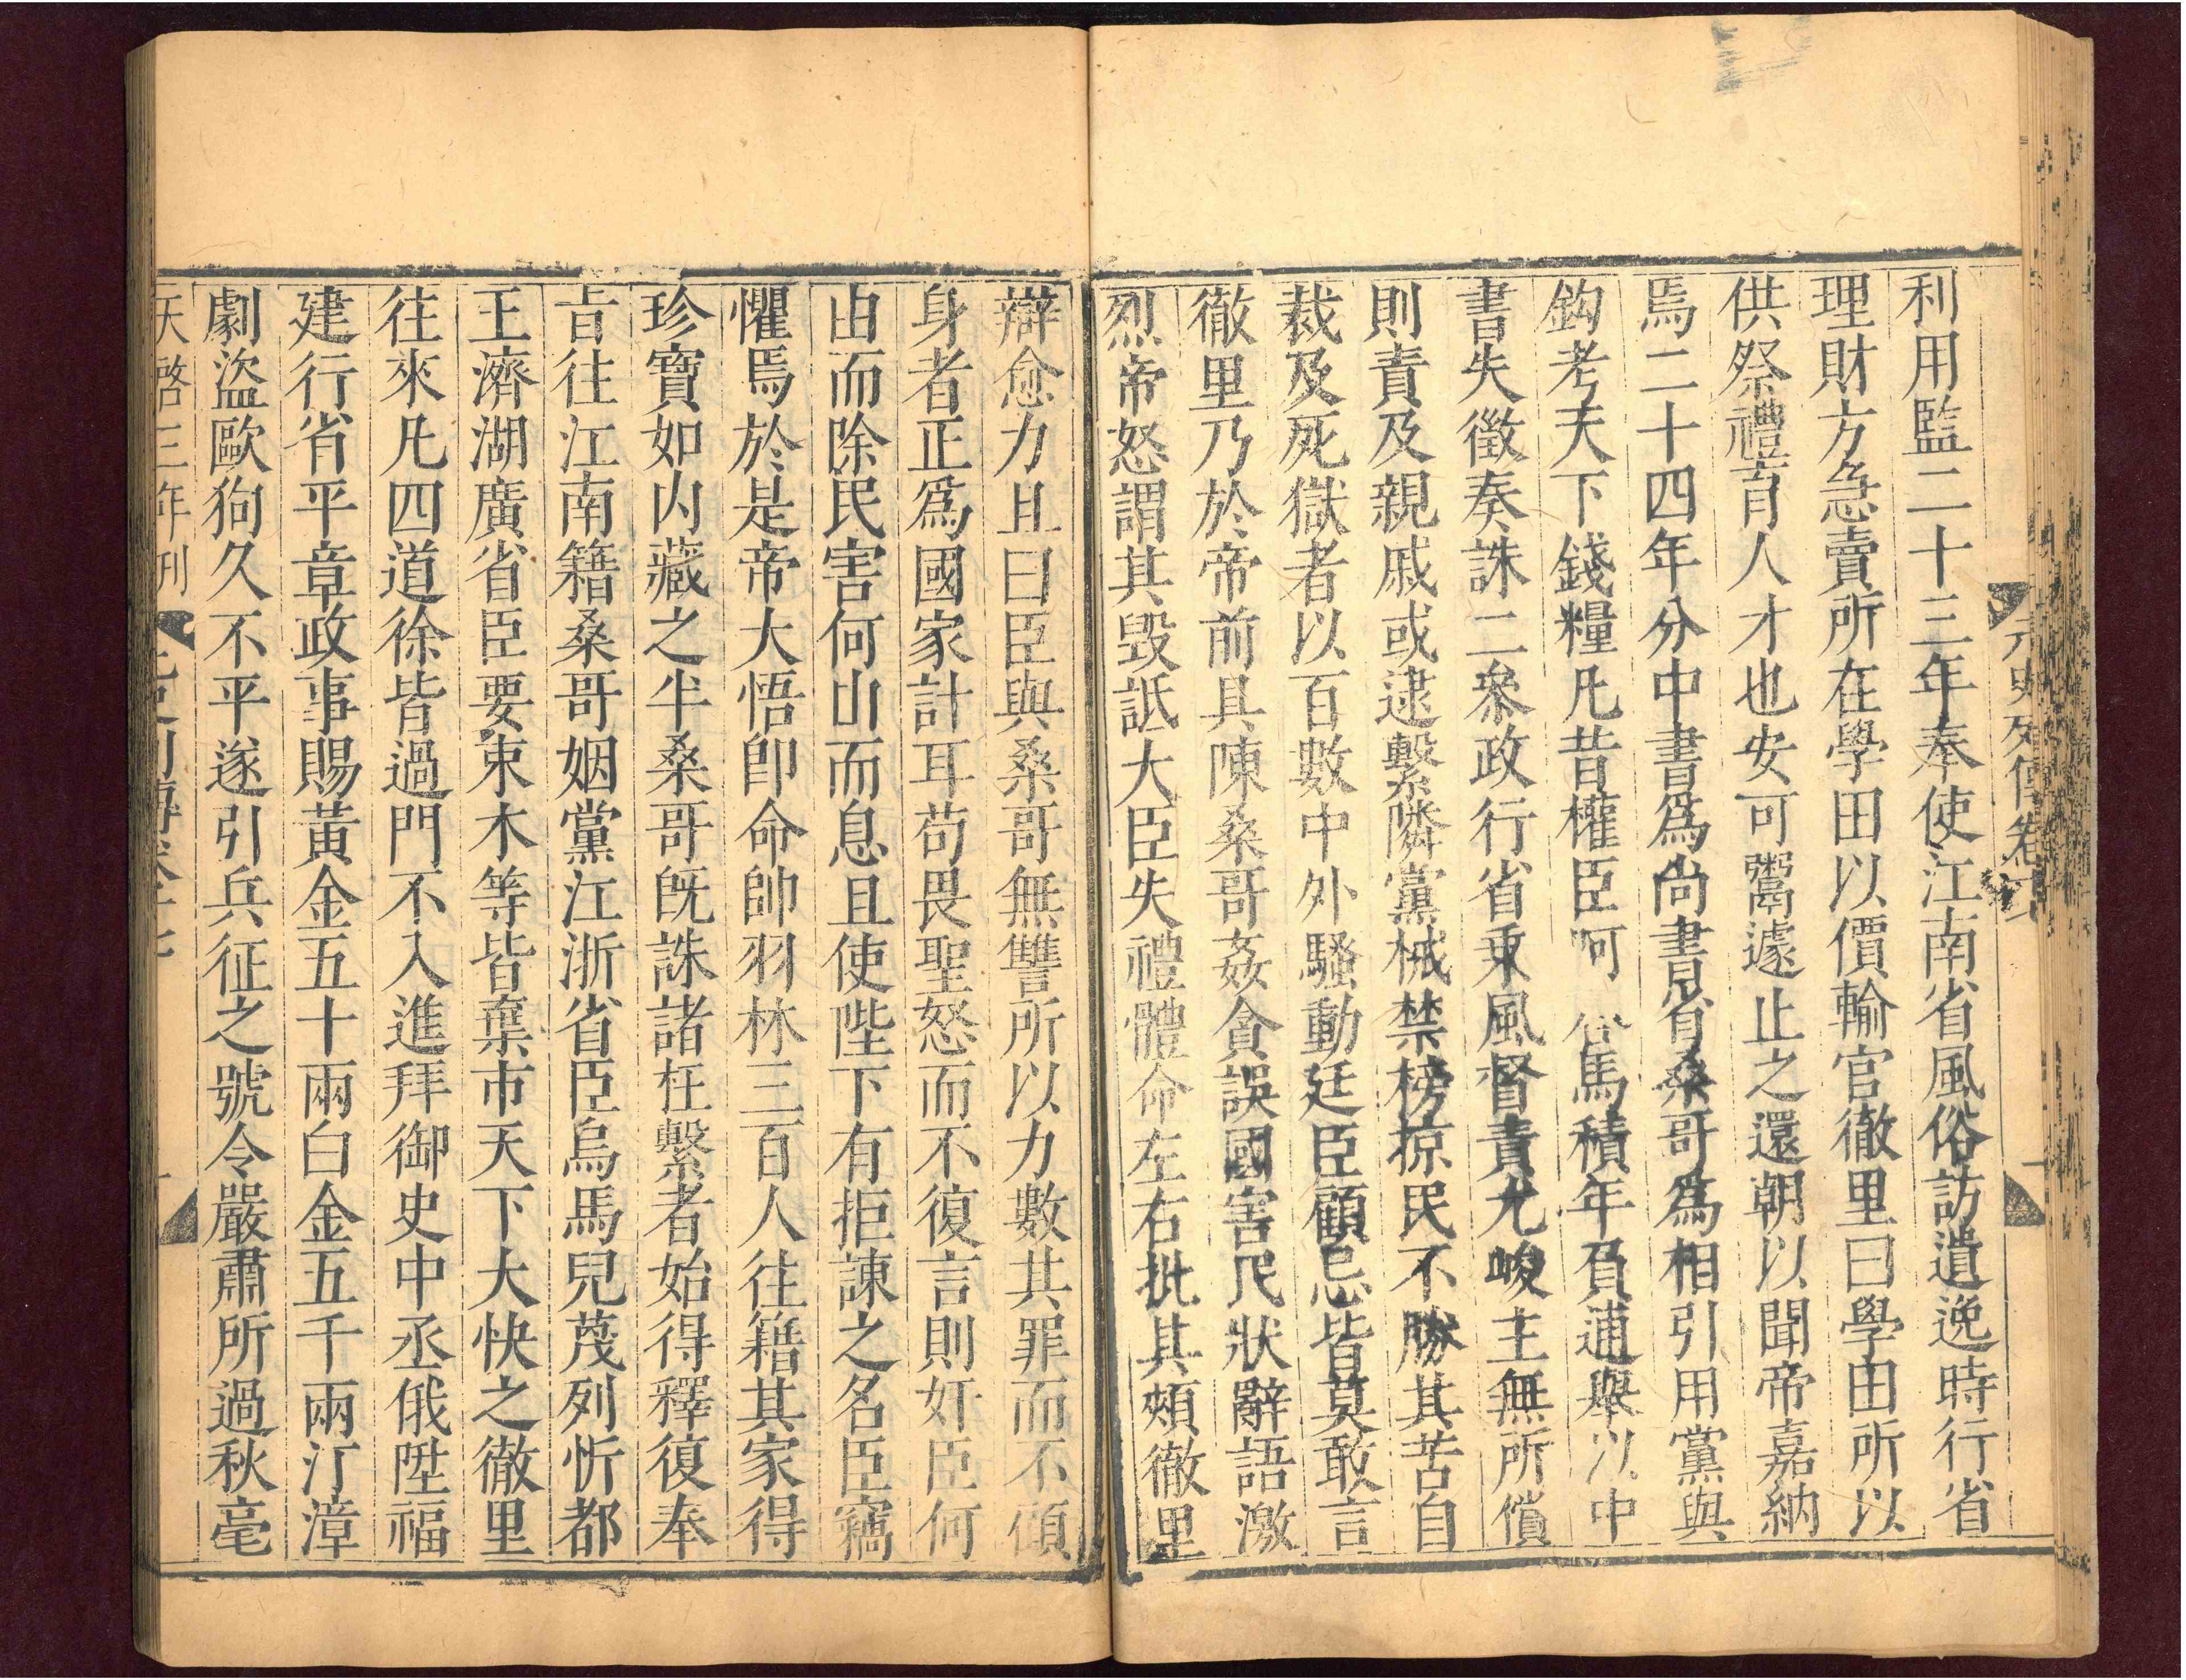 利用監二十三年奉使江南省風俗訪遺逸時行省
理財方急賣所在學田以價輸官徹里曰學田所以
供祭禮育人才也安可鬻遽止之還朝以聞帝嘉納
焉二十四年分中書爲尚書省桑哥爲相引用黨與
鈎考天下錢糧凡昔權臣阿合馬積年負逋舉以中
書失徵奏誅二叅政行省乘風督責尤峻主無所償
則責及親戚或逮繫隣黨械禁榜掠民不勝其苦自
裁及死獄者以百數中外騷動廷臣顧忌皆莫敢言
徹里乃於帝前具陳桑哥姦貪誤國害民狀辭語激
烈帝怒謂其毀詆大臣失禮體命左右批其頰徹里
辯愈力且曰臣與桑哥無讐所以力數其罪而不顧
身者正爲國家計耳苟畏聖怒而不復言則奸臣何
由而除民害何由而息且使陛下有拒諫之名臣竊
懼焉於是帝大悟卽命帥羽林三百人往籍其家得
珍寶如內藏之半桑哥旣誅諸枉繫者始得釋復奉
旨往江南籍桑哥姻黨江浙省臣烏馬兒蔑列忻都
王濟湖廣省臣要束木等皆棄市天下大快之徹里
往來凡四道徐皆過門不入進拜御史中丞俄陞福
建行省平章政事賜黃金五十兩白金五千兩汀漳
劇盜歐狗久不平遂引兵征之號令嚴肅所過秋毫
天啓三年刊